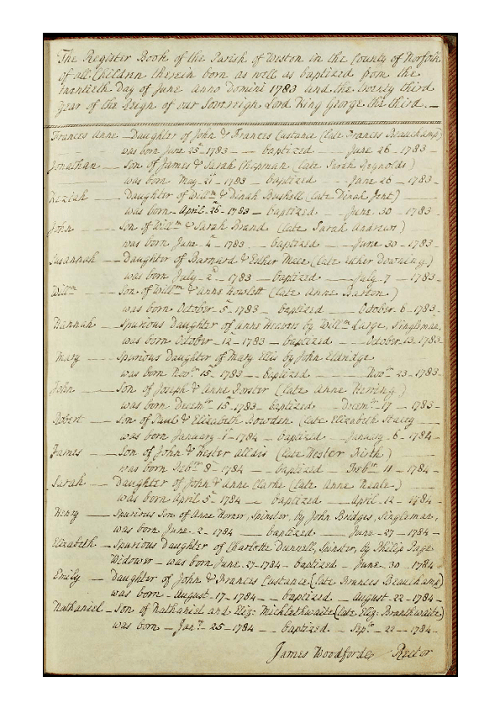 The Register Book of the Parish of Weston in the County of Norfolk
of all Children therein born as well as baptized from the
twentieth Day of June anno Domini 1783 and the twenty third
year of the Reign of our Sovereign Lord King George the third. —
Frances Anne — Daughter of John & Frances Custance (late Frances Beauchamp)
was born June 25th 1783 — baptized — June 26 — 1783 —
Jonathan — Son of James & Sarah Chapman (late Sarah Reynolds)
was born May 21st — 1783 — baptized — June 26 — 1783 —
Keziah — Daughter of Willm & Dinah Bushell (late Dinah )
was born April 26th — 1783 — baptized — June 30 — 1783
John — Son of Willm & Sarah Brand (late Sarah Andrew)
was born June 4th — 1783 — baptized — June 30 — 1783 —
Susannah — Daughter of Barnard & Esther (late Esther Downing)
was born July 2d — 1783 — baptized — July 7 — 1783 —
Willm — Son of Willm & Anne Howlett (late Anne Barton)
was born October 5th 1783 — baptized — October 6 — 1783 —
Hannah — Spurious Daughter of Anne Weaver by Willm Large, Singleman,
was born October 12 — 1783 — baptized — October 13. 1783
Mary — Spurious Daughter of Mary Ellis by John Elldridge
was born Novr 15th 1783 — baptized — Novr 23 — 1783 —
John — Son of Joseph & Anne Forster (late Anne Herring)
was born Decembr 15th 1783 baptized — Decembr 17 — 1783 —
Robert — Son of Paul & Elizabeth Bowden (late Elizabeth )
was born January 1st 1784 — baptized — January 6 — 1784 —
James — Son of John & Hester (late Hester )
was born Febry 8th 1784 — baptized — Febry 11 — 1784 —
Sarah — Daughter of John & Anne Clarke (late Anne Neale)
was born April 5th 1784 — baptized — April 12 — 1784 —
Henry — Spurious Son of Anne Horner, Spinster, by John Bridges, Singleman,
was born June 2 — 1784 — baptized — June 27 — 1784 —
Elizabeth — Spurious Daughter of Charlotte Dunnell, Spinster, by Philip Page
Widower — was born June 27 — 1784 — baptized — June 30 — 1784
Emily — Daughter of John & Frances Custance (late Frances Beauchamp)
was born — August 17 — 1784 — baptized — August 22 — 1784 —
Nathaniel — Son of Nathaniel and Eliz: Micklethwaite (late Eliz: Branthwaite)
was born — Jany 25 — 1784 — baptized — Septr — 22 — 1784 —
James Woodforde, Rector